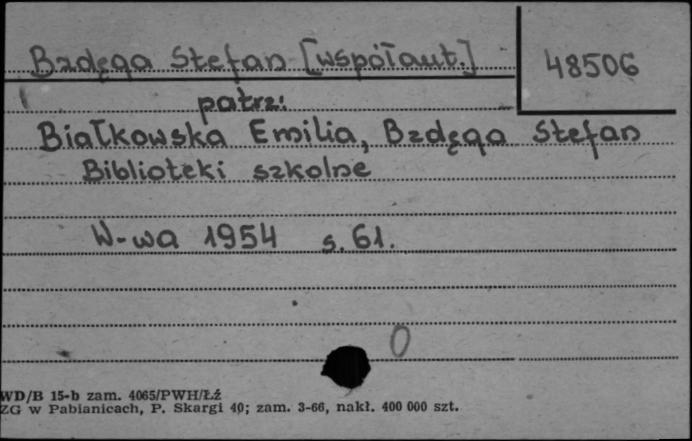 Bzdęga Stefan [współaut.]
48506
patrz:
Białkowska Emilia, Bzdęga Stefan
Biblioteki szkolne
W-wa 1954 s. 61.
0
WD/B 15-b zam. 4065/PWH/Łź
ZG w Pabianicach, P. Skargi 40; zam. 3-66, nakł. 400 000 szt.